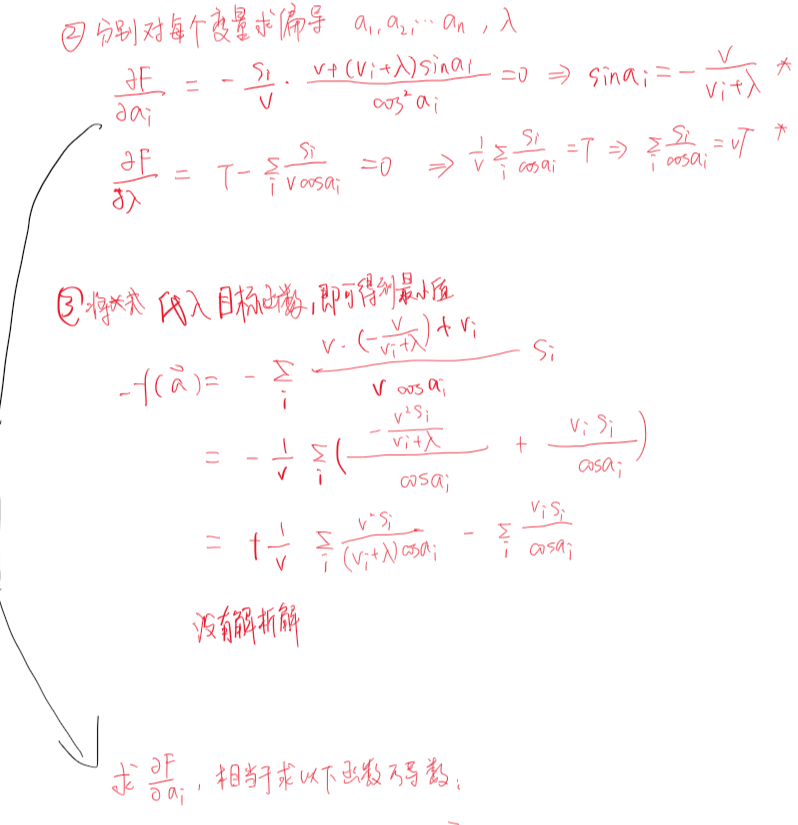 ② 分别对每个变量求偏导 a₁, a₂, ⋯ aₙ , λ
∂F/∂aᵢ = - sᵢ/v · (v+(vᵢ+λ)sinaᵢ)/cos²aᵢ =0 ⇒ sinaᵢ = - v/(vᵢ+λ) *
∂F/∂λ = T - Σᵢ sᵢ/(v cosaᵢ) =0 ⇒ 1/v Σᵢ sᵢ/cosaᵢ = T ⇒ Σᵢ sᵢ/cosaᵢ = vT *
③ 将*式 代入 目标函数, 即可得到最小值
-f(a⃗) = - Σᵢ (v · (- v/(vᵢ+λ)) + vᵢ)/(v cosaᵢ) sᵢ
= - 1/v Σᵢ ( (- v²sᵢ/(vᵢ+λ))/cosaᵢ + vᵢ sᵢ/cosaᵢ )
= + 1/v Σᵢ v²sᵢ/((vᵢ+λ)cosaᵢ) - Σᵢ vᵢsᵢ/cosaᵢ
没有解析解
求 ∂F/∂aᵢ , 相当于求以下函数的导数: